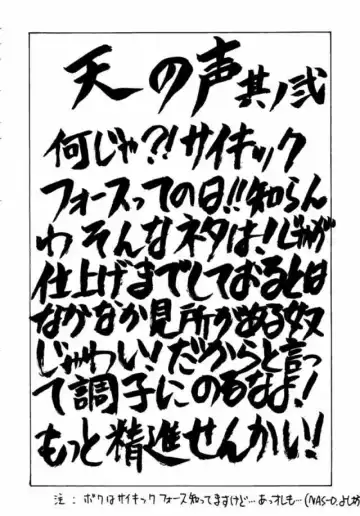 天の声 其ノ弐
何じゃ?!サイキック
フォースってのは!!知らん
わそんなネタは!じゃが
仕上げまでしておるとは
なかなか見所がある奴
じゃわい!だからと言っ
て調子にのるなよ!
もっと精進せんかい!!
注:ボクはサイキックフォース知ってますけど…あっオレも…(NAS-O.よしか